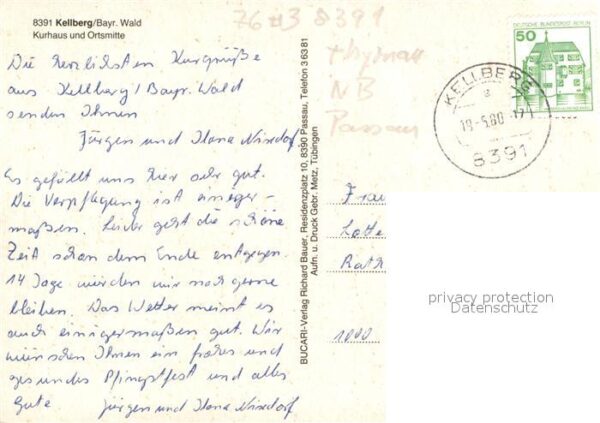 8391 Kellberg/Bayr. Wald
Kurhaus und Ortsmitte
Die herzlichsten Kurgrüße
aus Kellberg/Bayr. Wald
senden Ihnen
Jürgen und Ilona Nixdorf
Es gefällt uns hier sehr gut.
Die Verpflegung ist einiger-
maßen. Leider geht die schöne
Zeit schon dem Ende entgegen.
14 Tage würden wir noch gerne
bleiben. Das Wetter meint es
auch einigermaßen gut. Wir
wünschen Ihnen ein frohes und
gesundes Pfingstfest und alles
Gute Jürgen und Ilona Nixdorf
BUCARI-Verlag Richard Bauer, Residenzplatz 10, 8390 Passau, Telefon 3 63 81
Aufn. u. Druck Gebr. Metz, Tübingen
8391
thyrnau
NB
Passau
DEUTSCHE BUNDESPOST BERLIN
50
KELLBERG
a
8391
Frau
Lotte
Rath
1000
privacy protection
Datenschutz